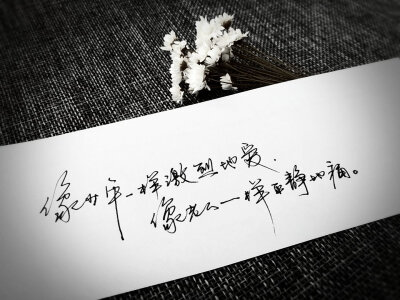 像少年一样激烈地爱.
像老人一样平静地痛。